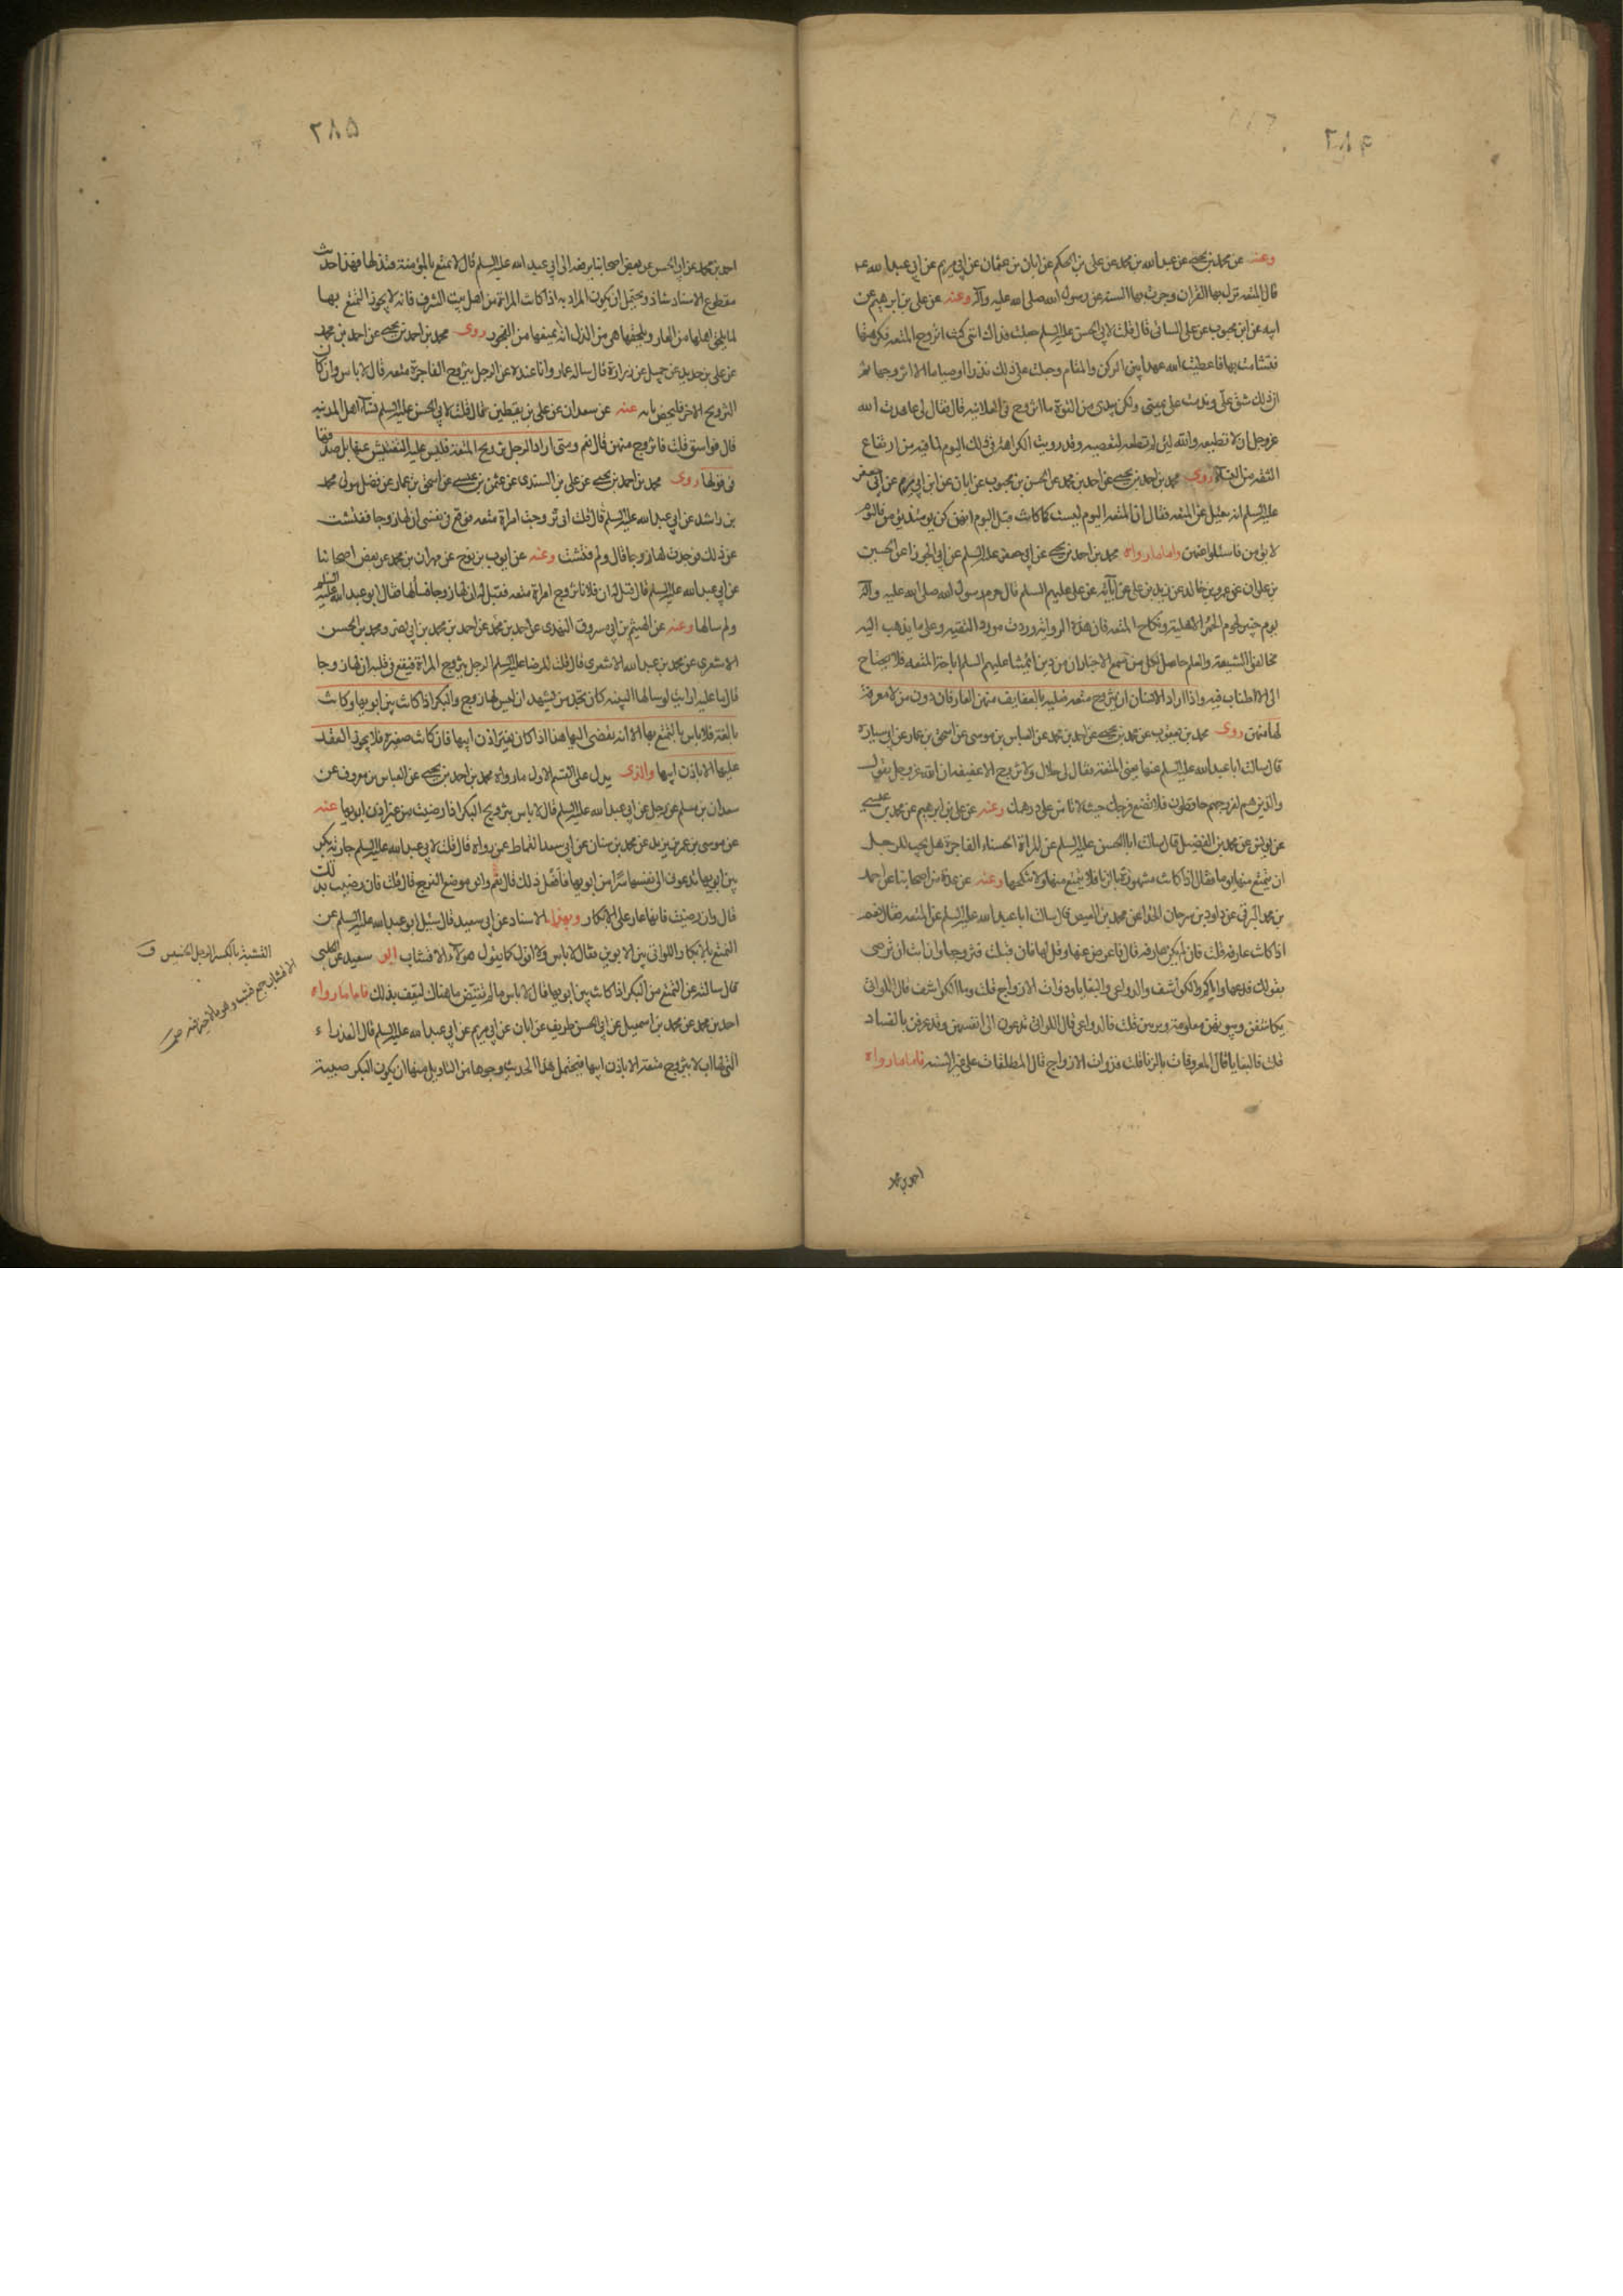 وعنه عن محمد بن يحيى عن عبد الله بن محمد عن على بن الحكم عن ابان بن عثمان عن ابى مريم عن ابى عبد الله ع
قال المتعه نزل بها القران وجرت بها السنه عن رسول الله صلى الله عليه وآله وعنه عن على بن ابرهيم عن
ابيه عن ابن محبوب عن على السائى قال قلت لابى الحسن عليه السلم جعلت فداك انى كنت اتزوج المتعه فكرهتها
فتشامت بها فاعطيت الله عهدا بين الركن والمقام وجعلت على ذلك نذرا وصياما الا اتزوجها ثم
ان ذلك شق على وندمت على يمينى ولكن بيدى من القوة ما اتزوج فى العلانيه قال فقال لى عاهدت الله
عزوجل ان لا تطيعه والله لئن لم تطعه لتعصينه وقد رويت الكراهة فى ذلك اليوم لما فيه من ارتفاع
الثقه من النساء روى محمد بن احمد بن يحيى عن احمد بن محمد عن الحسن بن محبوب عن ابان عن ابى مريم عن ابى جعفر
عليه السلم انه سئل عن المتعه فقال ان المتعه اليوم ليست كما كانت قبل اليوم انهن كن يومئذ يؤمن فاليوم
لا يؤمن فاسئلوا عنهن واما ما رواه محمد بن احمد بن يحيى عن ابى جعفر عن ابى الجوزا عن الحسين
بن علوان عن عمرو بن خالد عن زيد بن على عن آبائه عن على عليهم السلم قال حرم رسول الله صلى الله عليه وآله
يوم خيبر لحوم الحمر الاهلية ونكاح المتعه فان هذه الرواية وردت مورد التقيه وعلى ما يذهب اليه
مخالفوا الشيعة والعلم حاصل لكل من سمع الاخبار ان من دين ائمتنا عليهم السلم اباحة المتعه فلا يحتاج
الى الاطناب فيه واذا اراد الانسان ان يتزوج متعه فعليه بالعفايف منهن العارفات دون من لا معرفة
لها منهن روى محمد بن يعقوب عن محمد بن يحيى عن احمد بن محمد عن العباس بن موسى عن اسحق بن عمار عن ابى سارة
قال سالت ابا عبد الله عليه السلم عنها يعنى المتعة فقال لى حلال ولا تتزوج الا عفيفه ان الله عزوجل يقول
والذين هم لفروجهم حافظون فلا تضع فرجك حيث لا تامن على درهمك وعنه عن على بن ابرهيم عن محمد بن عيسى
عن يونس عن محمد بن الفضيل قال سالت ابا الحسن عليه السلم عن المراة الحسناء الفاجرة هل يجب للرجل
ان يتمتع منها يوما فقال اذا كانت مشهورة بالزنا فلا يتمتع منها ولا ينكحها وعنه عن عدة من اصحابنا عن احمد
بن محمد البرقى عن داود بن سرحان الحذا عن محمد بن الفيض قال سالت ابا عبد الله عليه السلم عن المتعه فقال نعم
اذا كانت عارفه قلت فان لم يكن عارفه قال فاعرض عنها وقل لها فان قبلت فتزوجها وان ابت ان ترضى
بقولك فدعها واياكم والكواشف والدواعى والبغايا وذوات الازواج قلت وما الكواشف قال اللواتى
يكاشفن وبيوتهن معلومة ويزنين قلت فالدواعى قال اللواتى يدعون الى انفسهن وقد عرفن بالفساد
قلت فالبغايا قال المعروفات بالزنا قلت فذوات الازواج قال المطلقات على غير السنه فاما ما رواه
احمد بن محمد
٢٨٥
احمد بن محمد عن ابى الحسن عن بعض اصحابنا يرفعه الى ابى عبد الله عليه السلم قال لا تتمتع بالمؤمنة فتذلها فهذا حديث
مقطوع الاسناد شاذ ويحتمل ان يكون المراد به اذا كانت المراة من اهل بيت الشرف فانه لا يجوز التمتع بها
لما يلحق اهلها من العار ويلحقها هى من الذل انه يمنعها من الفجور روى محمد بن احمد بن يحيى عن احمد بن محمد
عن على بن حديد عن جميل عن زرارة قال ساله عمار وانا عنده عن الرجل يتزوج الفاجرة متعه قال لا باس وان كان
التزويج الاخر فليحصن بابه عنه عن سعدان عن على بن يقطين قال قلت لابى الحسن عليه السلم نساء اهل المدينه
قال فواسق قلت فاتزوج منهن قال نعم ومتى اراد الرجل تزويج المتعة فليس عليه التفتيش عنها بل يصدقها
فى قولها روى محمد بن احمد بن يحيى عن على بن السندى عن عثمن بن عيسى عن اسحق بن عمار عن فضل مولى محمد
بن راشد عن ابى عبد الله عليه السلم قال قلت انى تزوجت امراة متعه فوقع فى نفسى ان لها زوجا ففتشت
عن ذلك فوجدت لها زوجا قال ولم فتشت وعنه عن ايوب بن نوح عن مهران بن محمد عن بعض اصحابنا
عن ابى عبد الله عليه السلم قال قيل له ان فلانا تزوج امراة متعه فقيل له ان لها زوجا فسألها فقال ابو عبد الله عليه السلم
ولم سالها وعنه عن الهيثم بن ابى مسروق النهدى عن احمد بن محمد بن ابى نصر ومحمد بن الحسن
الاشعرى عن محمد بن عبد الله الاشعرى قال قلت للرضا عليه السلم الرجل يتزوج المراة فيقع فى قلبه ان لها زوجا
قال ما عليه ارايت لو سالها البينه كان يجد من يشهد ان ليس لها زوج والبكر اذا كانت بين ابويها وكانت
بالغة فلا باس بالتمتع بها الا انه يفضى اليها هذا اذا كان بغير اذن ابيها فان كانت صغيرة فلا يجوز العقد
عليها الا باذن ابيها والذى يدل على القسم الاول ما رواه محمد بن احمد بن يحيى عن العباس بن معروف عن
سعدان بن مسلم عن رجل عن ابى عبد الله عليه السلم قال لا باس بتزويج البكر اذا رضيت من غير اذن ابويها عنه
عن موسى بن عمر بن يزيد عن محمد بن سنان عن ابى سعيد القماط عمن رواه قال قلت لابى عبد الله عليه السلم جارية بكر
بين ابويها تدعونى الى نفسها سرا من ابويها فافعل ذلك قال نعم واتق موضع الفرج قال قلت فان رضيت بذلك
قال وان رضيت فانها عار على الابكار وبهذا الاسناد عن ابى سعيد قال سئل ابو عبد الله عليه السلم عن
التمتع بالابكار اللواتى بين الابوين فقال لا باس ولا اقول كما يقول هؤلاء الاقشاب ابو سعيد عن الحلبى
قال سالته عن التمتع من البكر اذا كانت بين ابويها قال لا باس ما لم يقتض ما هناك لتعف بذلك فاما ما رواه
احمد بن محمد عن محمد بن اسمعيل عن ابى الحسن ظريف عن ابان عن ابى مريم عن ابى عبد الله عليه السلم قال العذراء
التى لها اب لا تتزوج متعة الا باذن ابيها فيحتمل هذا الحديث وجوها من التاويل منها ان يكون البكر صبية